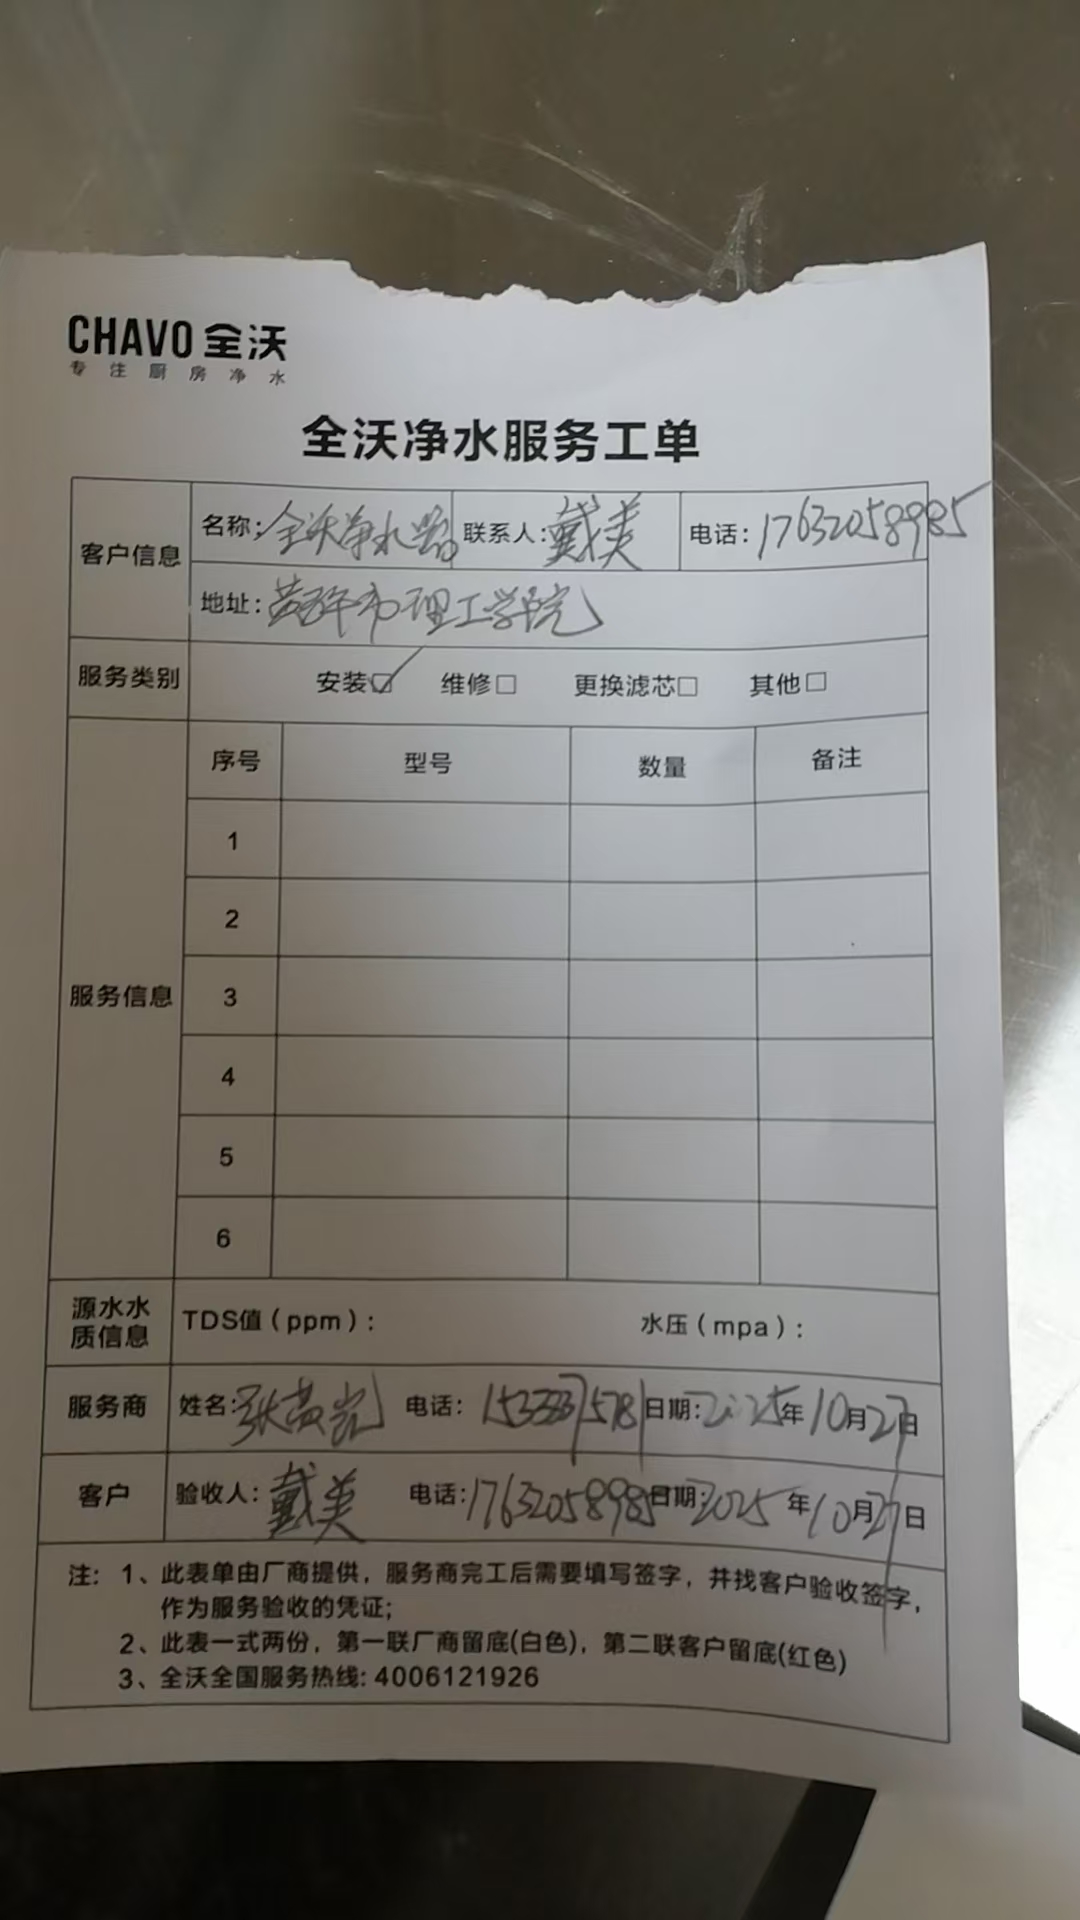 CHAVO 全沃
专注厨房净水
全沃净水服务工单
客户信息 名称:全沃净水器 联系人:戴美 电话:17632058985
地址:黄骅市理工学院
服务类别 安装☑ 维修□ 更换滤芯□ 其他□
服务信息 序号 型号 数量 备注
1
2
3
4
5
6
源水水质信息 TDS值(ppm): 水压(mpa):
服务商 姓名:张黄光 电话: 日期:2025年10月27日
客户 验收人:戴美 电话:17632058985 日期:2025年10月27日
注: 1、此表单由厂商提供,服务商完工后需要填写签字,并找客户验收签字,
作为服务验收的凭证;
2、此表一式两份,第一联厂商留底(白色),第二联客户留底(红色)
3、全沃全国服务热线: 4006121926